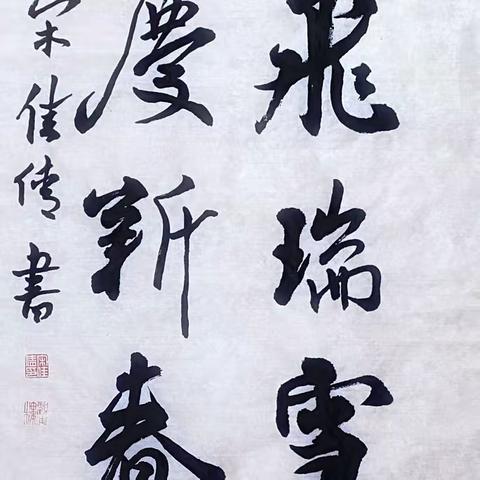 飛瑞雪
慶新春
宋佳倩書